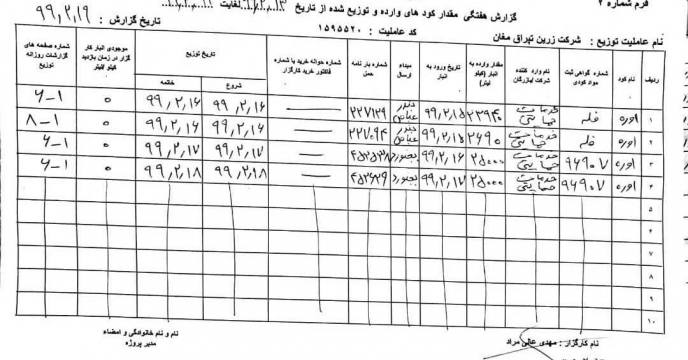 فرم شماره ۲
گزارش هفتگی مقدار کود های وارده و توزیع شده از تاریخ ۹۹/۲/۱۳ لغایت
تاریخ گزارش : ۹۹/۲/۱۹
نام عاملیت توزیع : شرکت زرین تیراق مغان
کد عاملیت : ۱۵۹۵۵۲۰
ردیف نام کود شماره گواهی ثبت مواد کودی نام وارد کننده شرکت انبارگان مقدار وارده به انبار (کیلو لیتر) تاریخ ورود به انبار مبداء ارسال شماره بار نامه حمل شماره حواله خرید یا شماره فاکتور خرید کارگزار تاریخ توزیع شروع خاتمه موجودی انبار کار گزار در زمان بازدید کیلو /لیتر شماره صفحه های گزارشات روزانه توزیع
۱ اوره فله خدمات حمایتی ۲۳۹۴۰ ۹۹/۲/۱۵ بندر ۲۲۷۱۲۹ — ۹۹/۲/۱۶ ۹۹/۲/۱۶ ۰ ۱-۶
۲ اوره فله خدمات حمایتی ۹۹/۲/۱۵ بندر ۲۲۷۰۹۴ — ۹۹/۲/۱۶ ۹۹/۲/۱۶ ۰ ۱-۸
۳ اوره ۹۶۹۰۷ خدمات حمایتی ۲۵۰۰۰ ۹۹/۲/۱۶ بجنورد ۴۵۲۵۳۸ — ۹۹/۲/۱۷ ۹۹/۲/۱۷ ۰ ۱-۶
۴ اوره ۹۶۹۰۷ خدمات حمایتی ۲۵۰۰۰ ۹۹/۲/۱۷ بجنورد ۴۵۲۶۲۹ — ۹۹/۲/۱۸ ۹۹/۲/۱۸ ۰ ۱-۶
۵
۶
۷
۸
۹
۱۰
نام کارگزار : مهدی عالی مراد
نام و نام خانوادگی و امضاء
مدیر پروژه